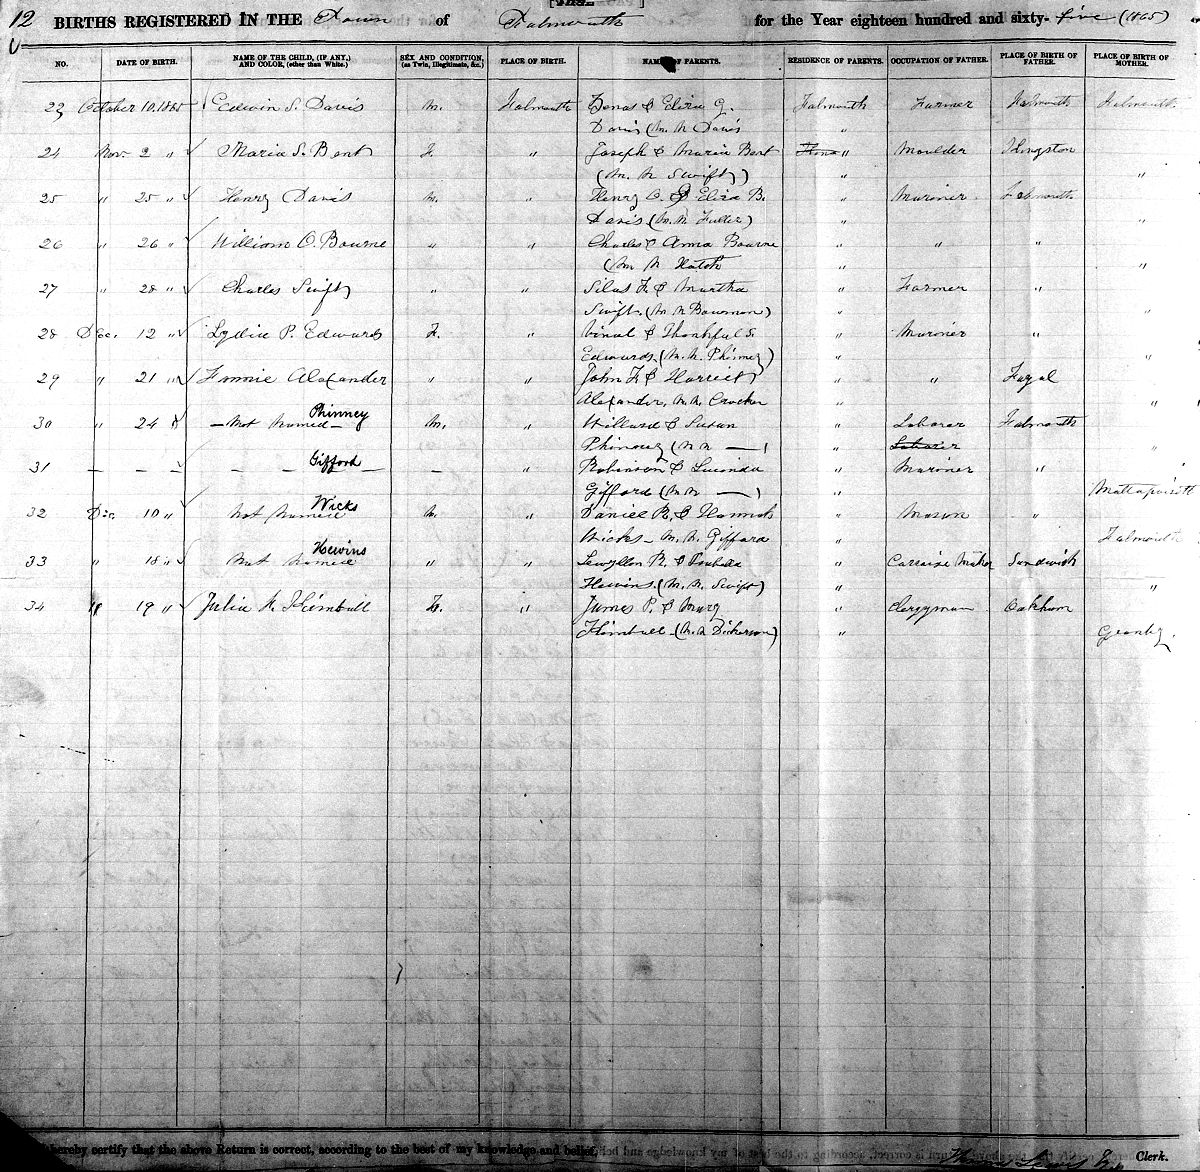 12 BIRTHS REGISTERED IN THE Town of Falmouth for the Year eighteen hundred and sixty-five (1865)
NO. DATE OF BIRTH. NAME OF THE CHILD, (IF ANY,) AND COLOR, (other than White.) SEX AND CONDITION, (as Twin, Illegitimate, &c.) PLACE OF BIRTH. NAMES OF PARENTS. RESIDENCE OF PARENTS. OCCUPATION OF FATHER. PLACE OF BIRTH OF FATHER. PLACE OF BIRTH OF MOTHER.
23 October 10, 1865 Edwin S. Davis M. Falmouth & Eliza G. Falmouth Farmer Falmouth Falmouth
Davis (M. N Davis "
24 Nov. 2 " Maria S. Bent F. " Joseph & Maria Bent " Moulder
(M. N Swift) " "
25 " 25 " Henry Davis M. " Henry C. & Eliza B. Mariner Falmouth
Davis (M. N Fuller) " "
26 " 26 " William O. Bourne " " Charles & Anna Bourne " "
(M. N Hatch " "
27 " 28 " Charles Swift " " Silas F. & Martha Farmer "
Swift. (M. N Bowman) " "
28 Dec. 12 " Lydia P. Edwards F. " & Thankful S. Mariner "
Edwards. (M. N. Phinney) " "
29 " 21 " Alexander " " John F. & Harriet " Fayal
Alexander, M. N. Crocker " "
30 " 24 " - Not Named - Phinney M. " Willard & Susan Laborer Falmouth
Phinney (M N — ) " Laborer "
31 - - - - Gifford - - " Robinson & Mariner "
Gifford (M N — ) " Mattapoisett
32 Dec. 10 " Not Named Wicks M. " Daniel B. & Hannah Mason "
Wicks - M. N. Gifford " Falmouth
33 " 18 " Not Named Hewins " " Lewellen & Carraige Maker Sandwich
Hewins. (M. N. Swift) " "
34 " 19 " Julia F. " James P. & Mary " Clergyman Oakham
(M. N Dickerson) " Granby.
hereby certify that the above Return is correct, according to the best of my knowledge and belief. Clerk.